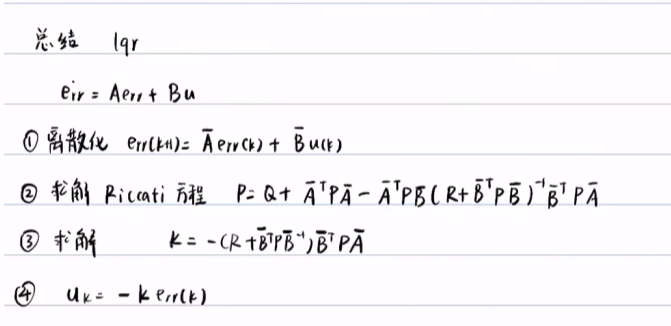 总结 lqr
ėrr = Aerr + Bu
① 离散化 err(k+1) = Āerr(k) + B̄u(k)
② 求解 Riccati 方程 P = Q + ĀᵀPĀ - ĀᵀPB̄(R + B̄ᵀPB̄)⁻¹B̄ᵀPĀ
③ 求解 K = -(R + B̄ᵀPB̄⁻¹)B̄ᵀPĀ
④ uₖ = -k err(k)